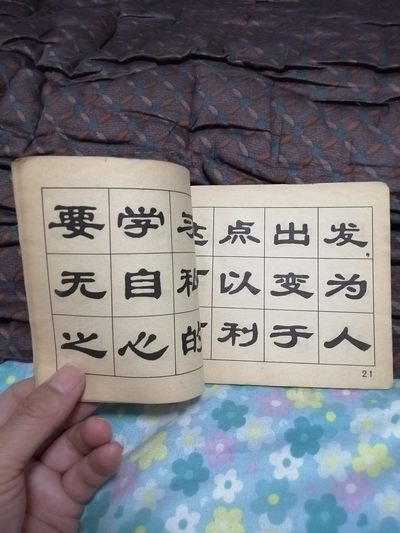 要学
无自
之心的
点出发，
以变为
利于人
21